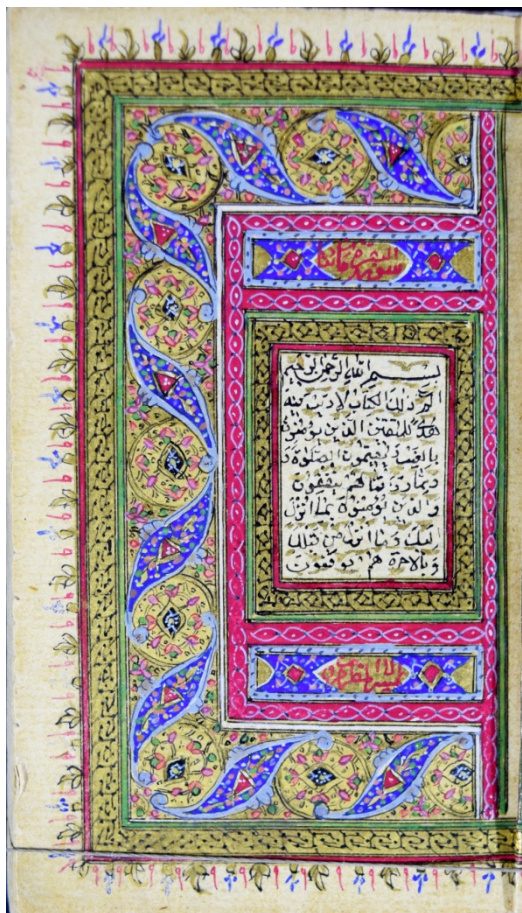 سورة البقرة
بسم الله الرحمن الرحيم
الم ذلك الكتاب لا ريب فيه
هدى للمتقين الذين يؤمنون
بالغيب و يقيمون الصلوة و
و مما رزقناهم ينفقون
والذين يؤمنون بما انزل
اليك وما انزل من قبلك
وبالاخرة هم يوقنون
الا المطهرون